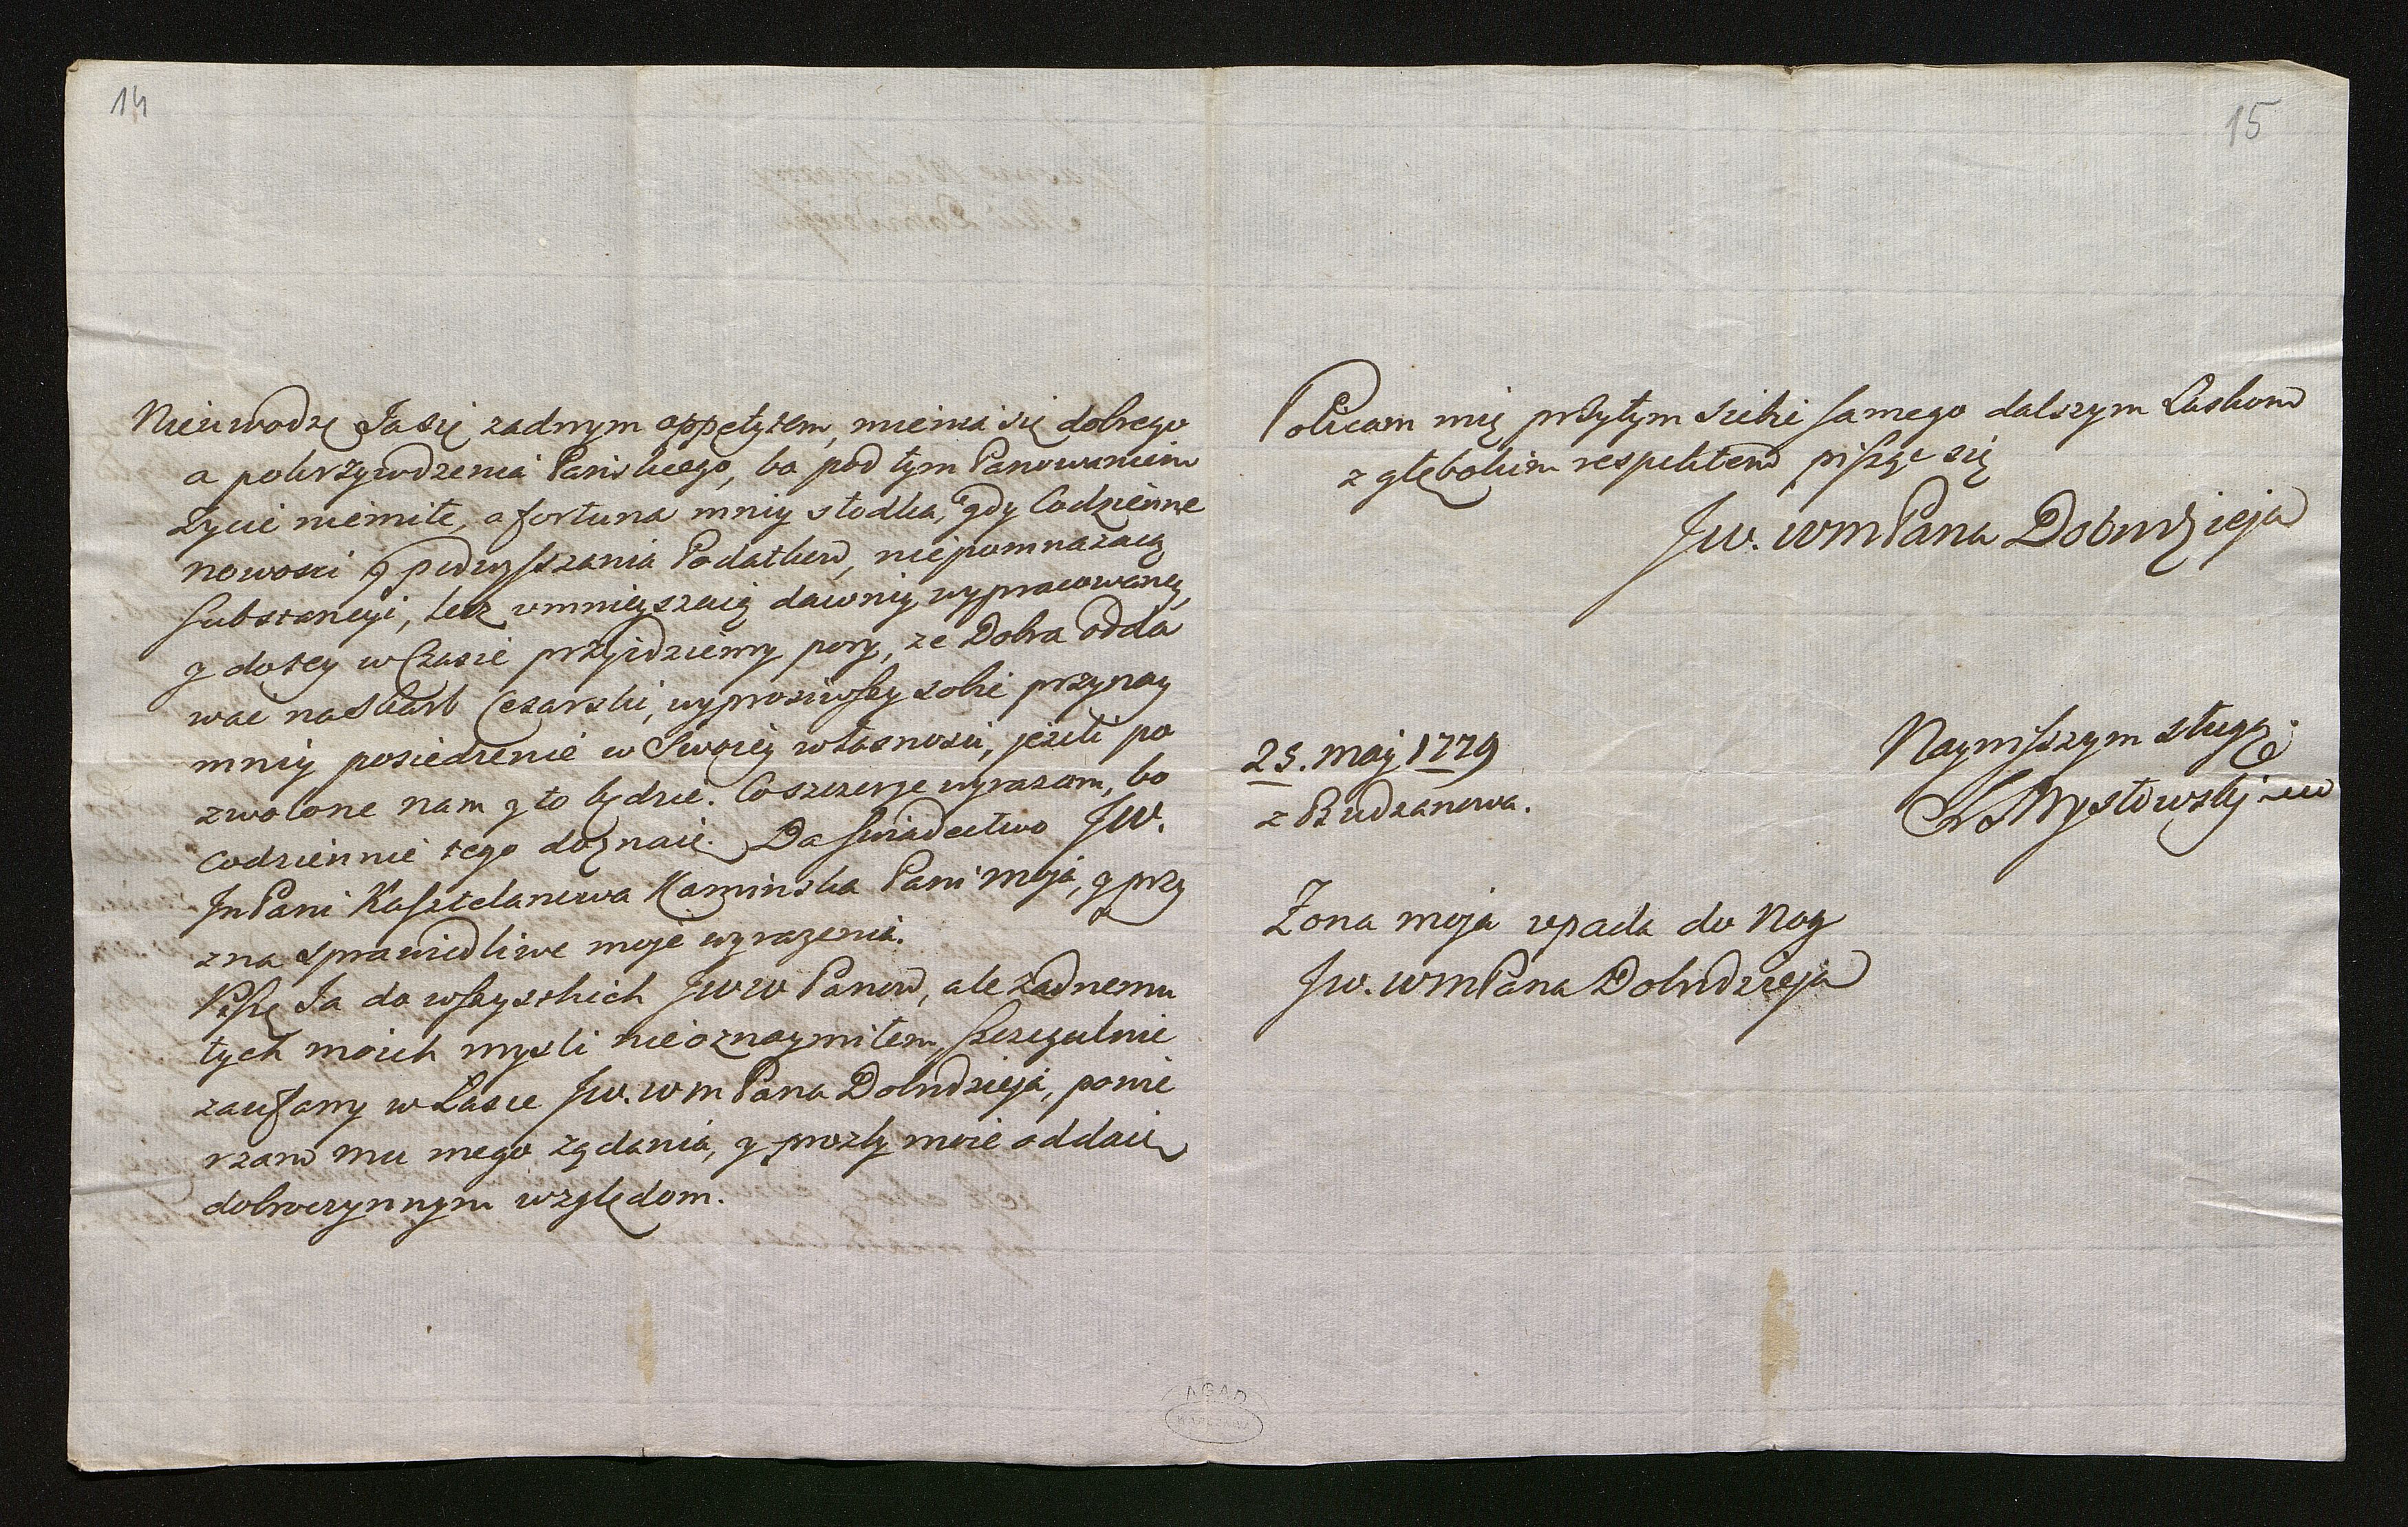 14
Nieuwodzę Ja się zadnym appetytem, mienia się dobrego
a pokrzywdzenia Pańskiego, bo pod tym Panowaniem
życie niemiłe, a fortuna mniy słodka, gdy Codzienne
nowosci y podwyszszania Podatkow, niepomnażaią
substancyi, lecz vmnieyszaią dawniy wypracowaney,
y dotey w Czasie przyidziemy pory, ze Dobra odda
wać na Skarb Cesarski, wyprosiwszy sobie przynay
mniy posiedzenie w Swoiey własnosci, jeżeli po
zwolone nam y to będzie. Co szczerze wyrazam, bo
Codziennie tego doznaię. Da swiadectwo JW.
JmPani Kasztelanowa Kaminska Pani moja, y przy
zna sprawiedliwe moje wyrazenia.
Piszę Ja do wszystkich JWW Panow, ale żadnemu
tych moich mysli nieoznaymiłem, szczegulnie
zaufany w Łasce JW. WM Pana Dobrdzieja, powie
rzam mu mego żądania, y prozby moie oddaię
dobroczynnym względom.
15
Policam mię przytym siebie samego dalszym Łaskom
z głębokim respektem pisząc się
JW. WMPana Dobrdzieja
25. Maij 1779
z Budzanowa.
Nayniższym sługą
Mysłowskj mp
Żona moja vpada do Nog
JW. WMPana Dobrdzieja
AGAD
WARSZAWA